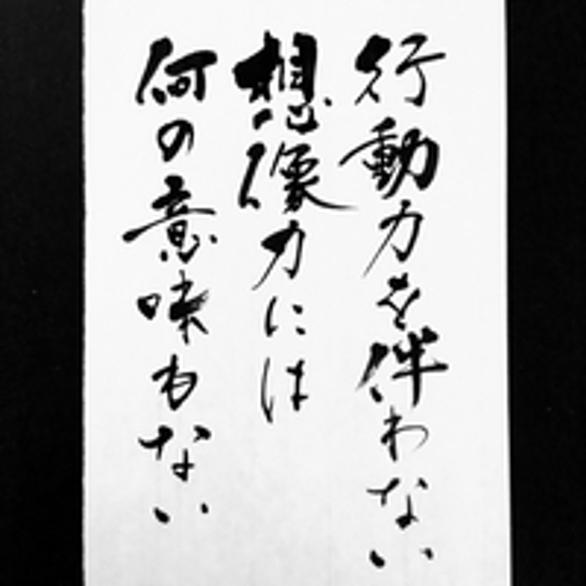 行動力を伴わない
想像力には
何の意味もない